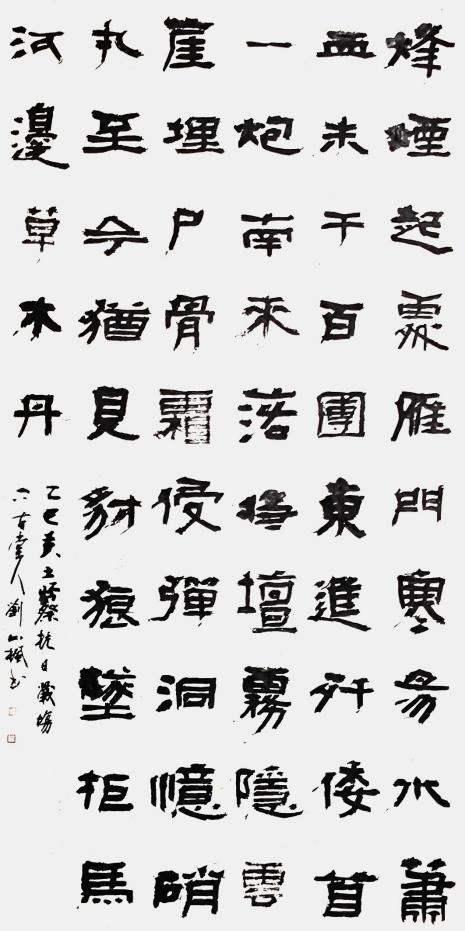 烽煙起處雁門寒易水蕭
血未干百團東進歼倭首
一炮南來落將壇霧隱雲
崖埋尸骨霜侵彈洞憶硝
丸至今猶見豺狼墜拒馬
河邊草木丹
乙巳黄土嶺祭抗日戰場
六古堂人劉楓书